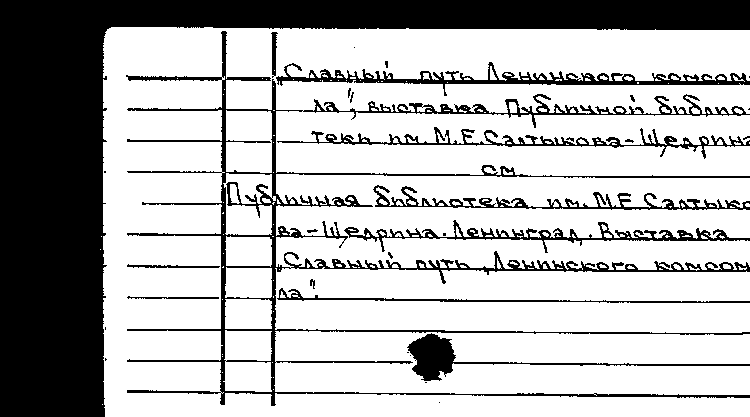 „Славный путь Ленинского комсом
ла", выставка Публичной библио
теки им. М.Е.Салтыкова-Щедрина
см.
Публичная библиотека им. М.Е Салтыко
ва-Щедрина. Ленинград. Выставка
„Славный путь Ленинского комсом
ла".